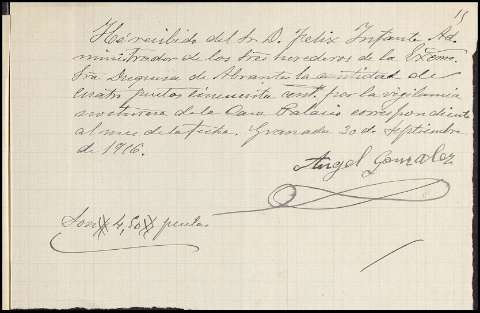 15
He recibido del Sr. D. Felix Infante Ad-
ministrador de los tres herederos de la Excma.
Sra. Duquesa de Abrantes la cantidad de
cuatro pesetas cincuenta cents. por la vigilancia
nocturna de la Casa Palacio correspondiente
al mes de la fecha. Granada 30 de Septiembre
de 1916.
Angel Gonzalez
Son # 4,50 # pesetas